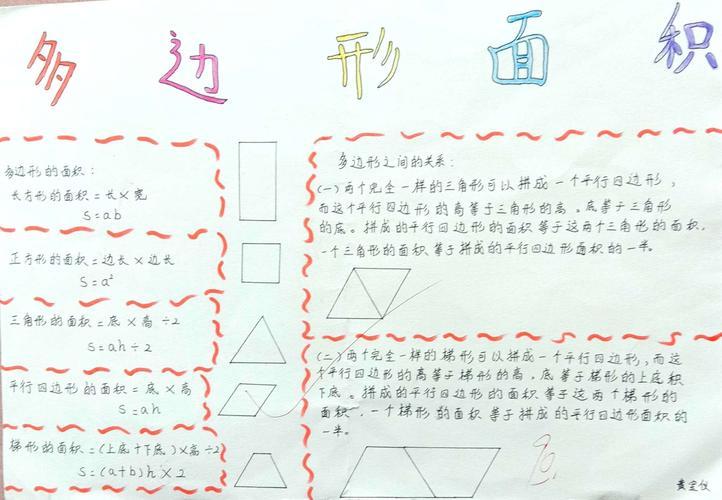 多边形面积
多边形的面积：
长方形的面积=长×宽
S=ab
正方形的面积=边长×边长
S=a²
三角形的面积=底×高÷2
S=ah÷2
平行四边形的面积=底×高
S=ah
梯形的面积=(上底+下底)×高÷2
S=(a+b)h×2
多边形之间的关系：
(一)两个完全一样的三角形可以拼成一个平行四边形，
而这个平行四边形的高等于三角形的高。底等于三角形
的底。拼成的平行四边形的面积等于这两个三角形的面积，
一个三角形的面积等于拼成的平行四边形面积的一半。
(二)两个完全一样的梯形可以拼成一个平行四边形，而这
个平行四边形的高等于梯形的高，底等于梯形的上底积
下底。拼成的平行四边形的面积等于这两个梯形的
面积，一个梯形的面积等于拼成的平行四边形面积的
一半。